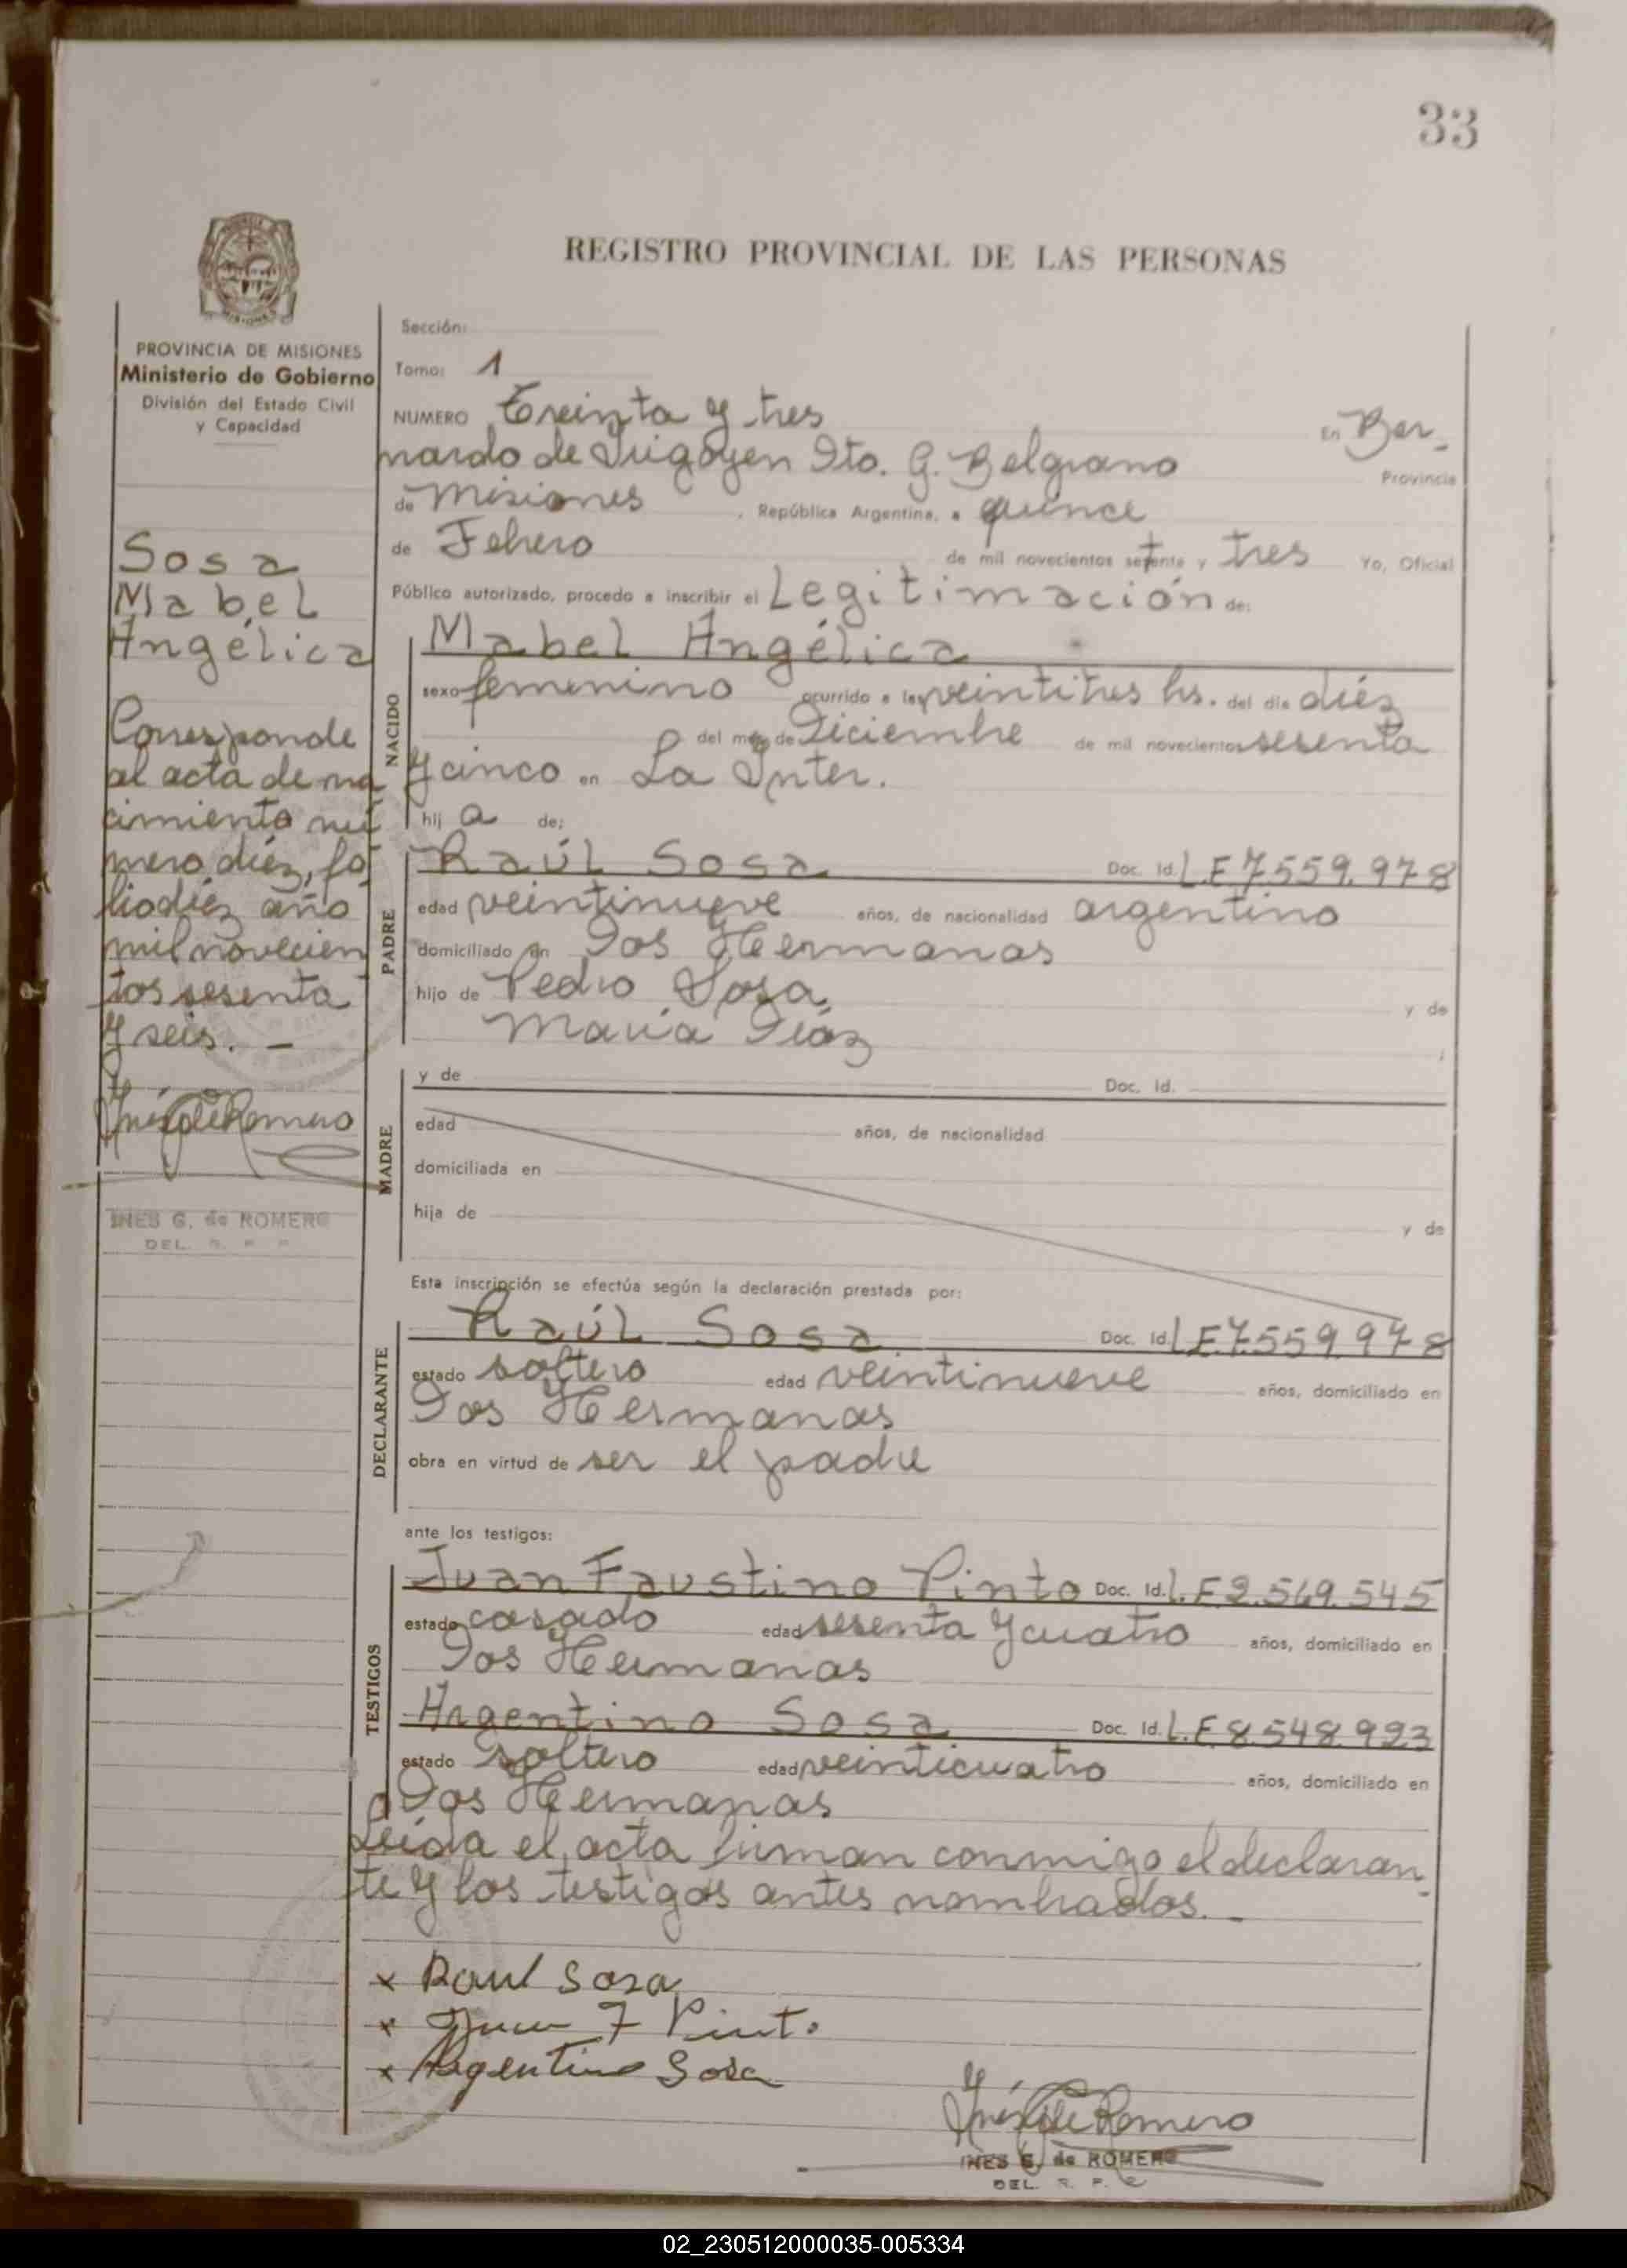 33
REGISTRO PROVINCIAL DE LAS PERSONAS
PROVINCIA DE MISIONES
Ministerio de Gobierno
División del Estado Civil
y Capacidad
Sosa
Mabel
Angélica
Corresponde
al acta de na
cimiento nú
mero diéz, fo
lio diéz año
mil novecien
tos sesenta
y seis. -
Inés G de Romero
INES G. de ROMERO
DEL. R. P. P.
Sección:
Tomo: 1
NUMERO Treinta y tres En Ber-
nardo de Irigoyen Dto. G. Belgrano Provincia
de Misiones, República Argentina, a quince
de Febrero de mil novecientos setenta y tres Yo, Oficial
Público autorizado, procedo a inscribir el Legitimación de:
NACIDO
Mabel Angélica
sexo femenino ocurrido a las veintitres hs. del día diéz
del mes de Diciembre de mil novecientos sesenta
y cinco en La Inter.
hij a de:
PADRE
Raúl Sosa Doc. Id. L.E 7.559.978
edad veintinueve años, de nacionalidad argentino
domiciliado en Dos Hermanas
hijo de Pedro Sosa, y de
María Diáz
MADRE
y de Doc. Id.
edad años, de nacionalidad
domiciliada en
hija de y de
Esta inscripción se efectúa según la declaración prestada por:
DECLARANTE
Raúl Sosa Doc. Id. L.E.7.559.978
estado soltero edad veintinueve años, domiciliado en
Dos Hermanas
obra en virtud de ser el padre
ante los testigos:
TESTIGOS
Juan Faustino Pinto Doc. Id. L.E 2.549.545
estado casado edad sesenta y cuatro años, domiciliado en
Dos Hermanas
Argentino Sosa Doc. Id. L.E 8.548.993
estado soltero edad veinticuatro años, domiciliado en
Dos Hermanas
Leída el acta firman conmigo el declaran-
te y los testigos antes nombrados. -
x Raul Sosa
x Juan F Pinto
x Argentino Sosa
Inés G de Romero
INES G. de ROMERO
DEL. R. P. P.
02_230512000035-005334